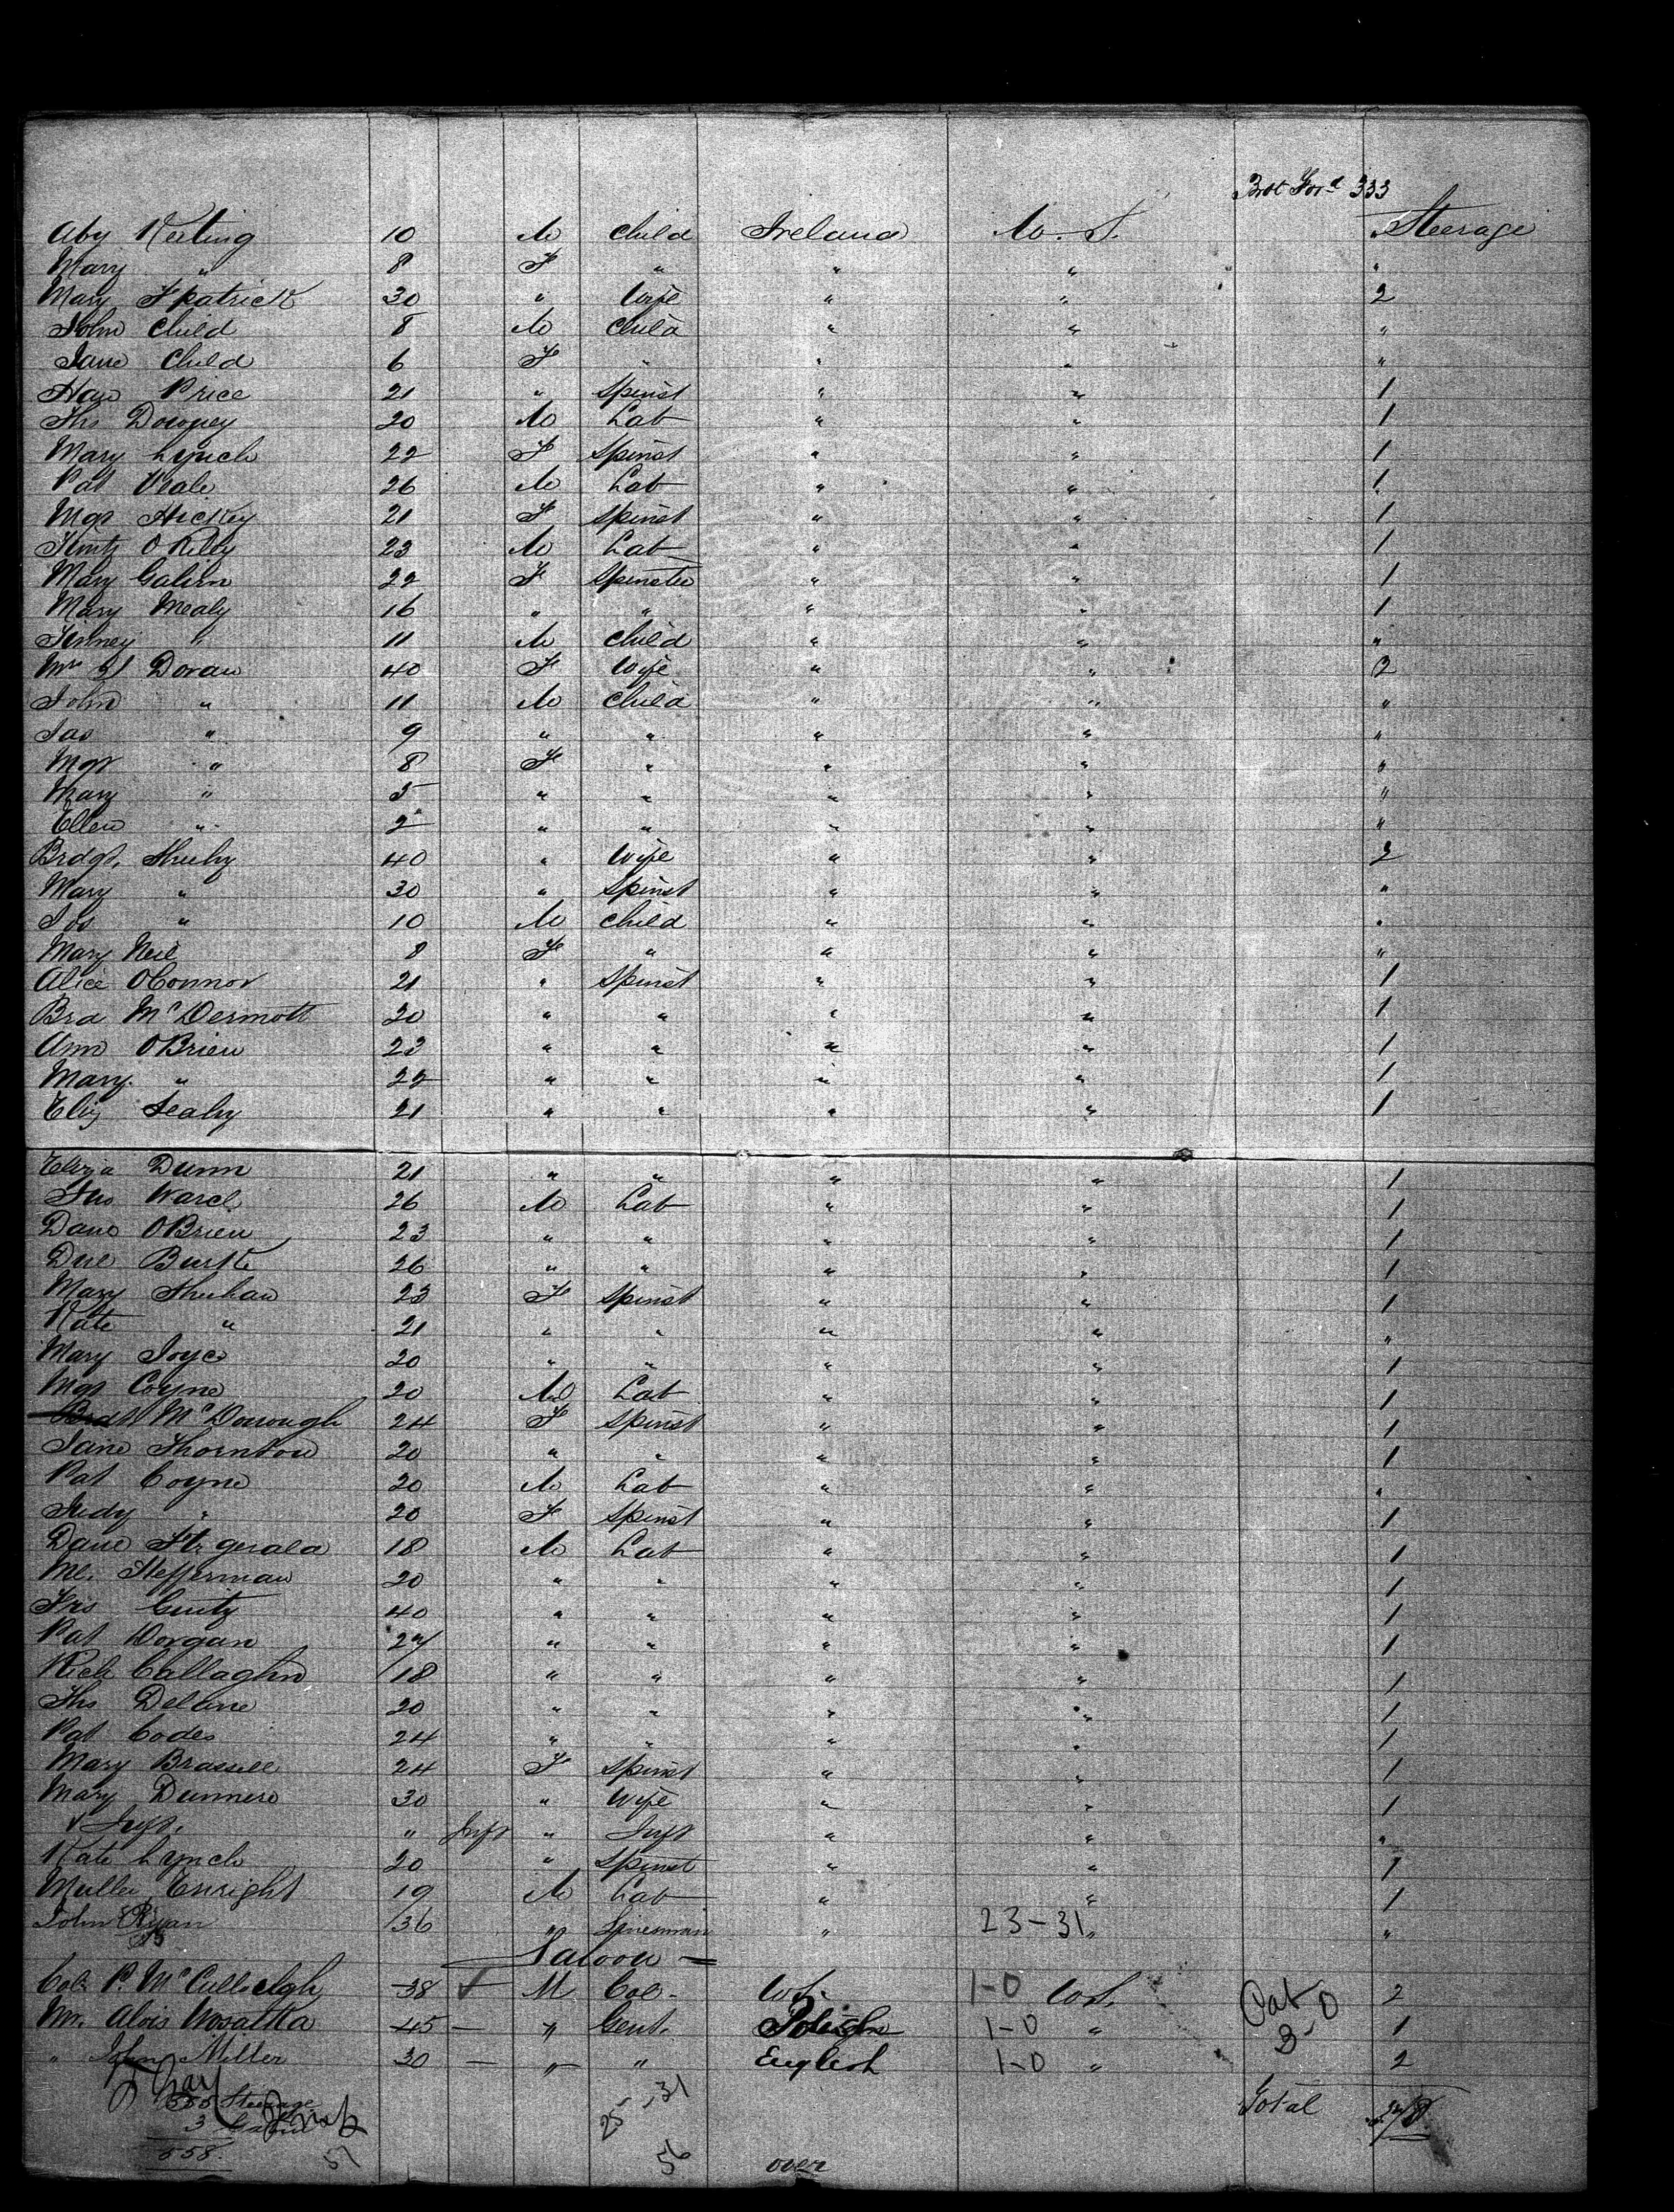 Brot Ford 333
Aby Keeting 10 M Child Ireland U.S. " Steerage
Mary " 8 F " " " "
Mary Fpatrick 30 " Wife " " 2
John Child 8 M Child " " "
Jane Child 6 F " " " "
Han Price 21 " Spinst " " 1
Ths Downey 20 M Lab " " 1
Mary Lynch 22 F Spinst " " 1
Pat Veale 26 M Lab " " 1
Mgt Hickey 21 F Spinst " " 1
Timty O Rilly 23 M Lab " " 1
Mary 22 F Spinster " " 1
Mary Mealy 16 " " " " 1
" 11 M Child " " "
Mrs Doran 40 F Wife " " 2
John " 11 M Child " " "
Jas " 9 " " " " "
Mgt " 8 F " " " "
Mary " 5 " " " " "
Ellen " 2 " " " " "
Brdgt. Sheehy 40 " Wife " " 2
Mary " 30 " Spinst " " "
Jos " 10 M Child " " "
Mary Neil 8 F " " " "
Alice OConnor 21 " Spinst " " 1
Brd McDermott 20 " " " " 1
Ann OBrien 23 " " " " 1
Mary " 22 " " " " 1
Eliz Leahy 21 " " " " 1
Eliza Dunn 21 " " " " 1
Ward 26 M Lab " " 1
Danl OBrien 23 " " " " 1
Burke 26 " " " " 1
Mary Shuhan 23 F Spinst " " 1
Kate " 21 " " " " "
Mary Joyce 20 " " " " 1
Mgt Coyne 20 M Lab " " 1
Brdt McDonough 24 F Spinst " " 1
Jane Thornton 20 " " " " 1
Pat Coyne 20 M Lab " " "
Judy " 20 F Spinst " " 1
Danl Fitzgerald 18 M Lab " " 1
Ml. Hefferman 20 " " " " 1
40 " " " " 1
Pat Dorgan 27 " " " " 1
Rich Callaghn 18 " " " " 1
Ths Delane 20 " " " " 1
Pat Codes 24 " " " " 1
Mary Brassell 24 F Spinst " " 1
Mary 30 " Wife " " 1
Inft. " Inft " Inft " " "
Kate Lynch 20 " Spinst " " 1
Enright 19 M Lab " " 1
John Ryan 36 " Lineman " 23-31 " "
Saloon
Col. P. McCullough 38 M Col. U.S. 1-0 U.S. 2
Mr. Alois 45 " Gent. Polish 1-0 " 1
" John Miller 30 " " English 1-0 " 2
Steerage 25 31 Total
3
558. 57 56 over